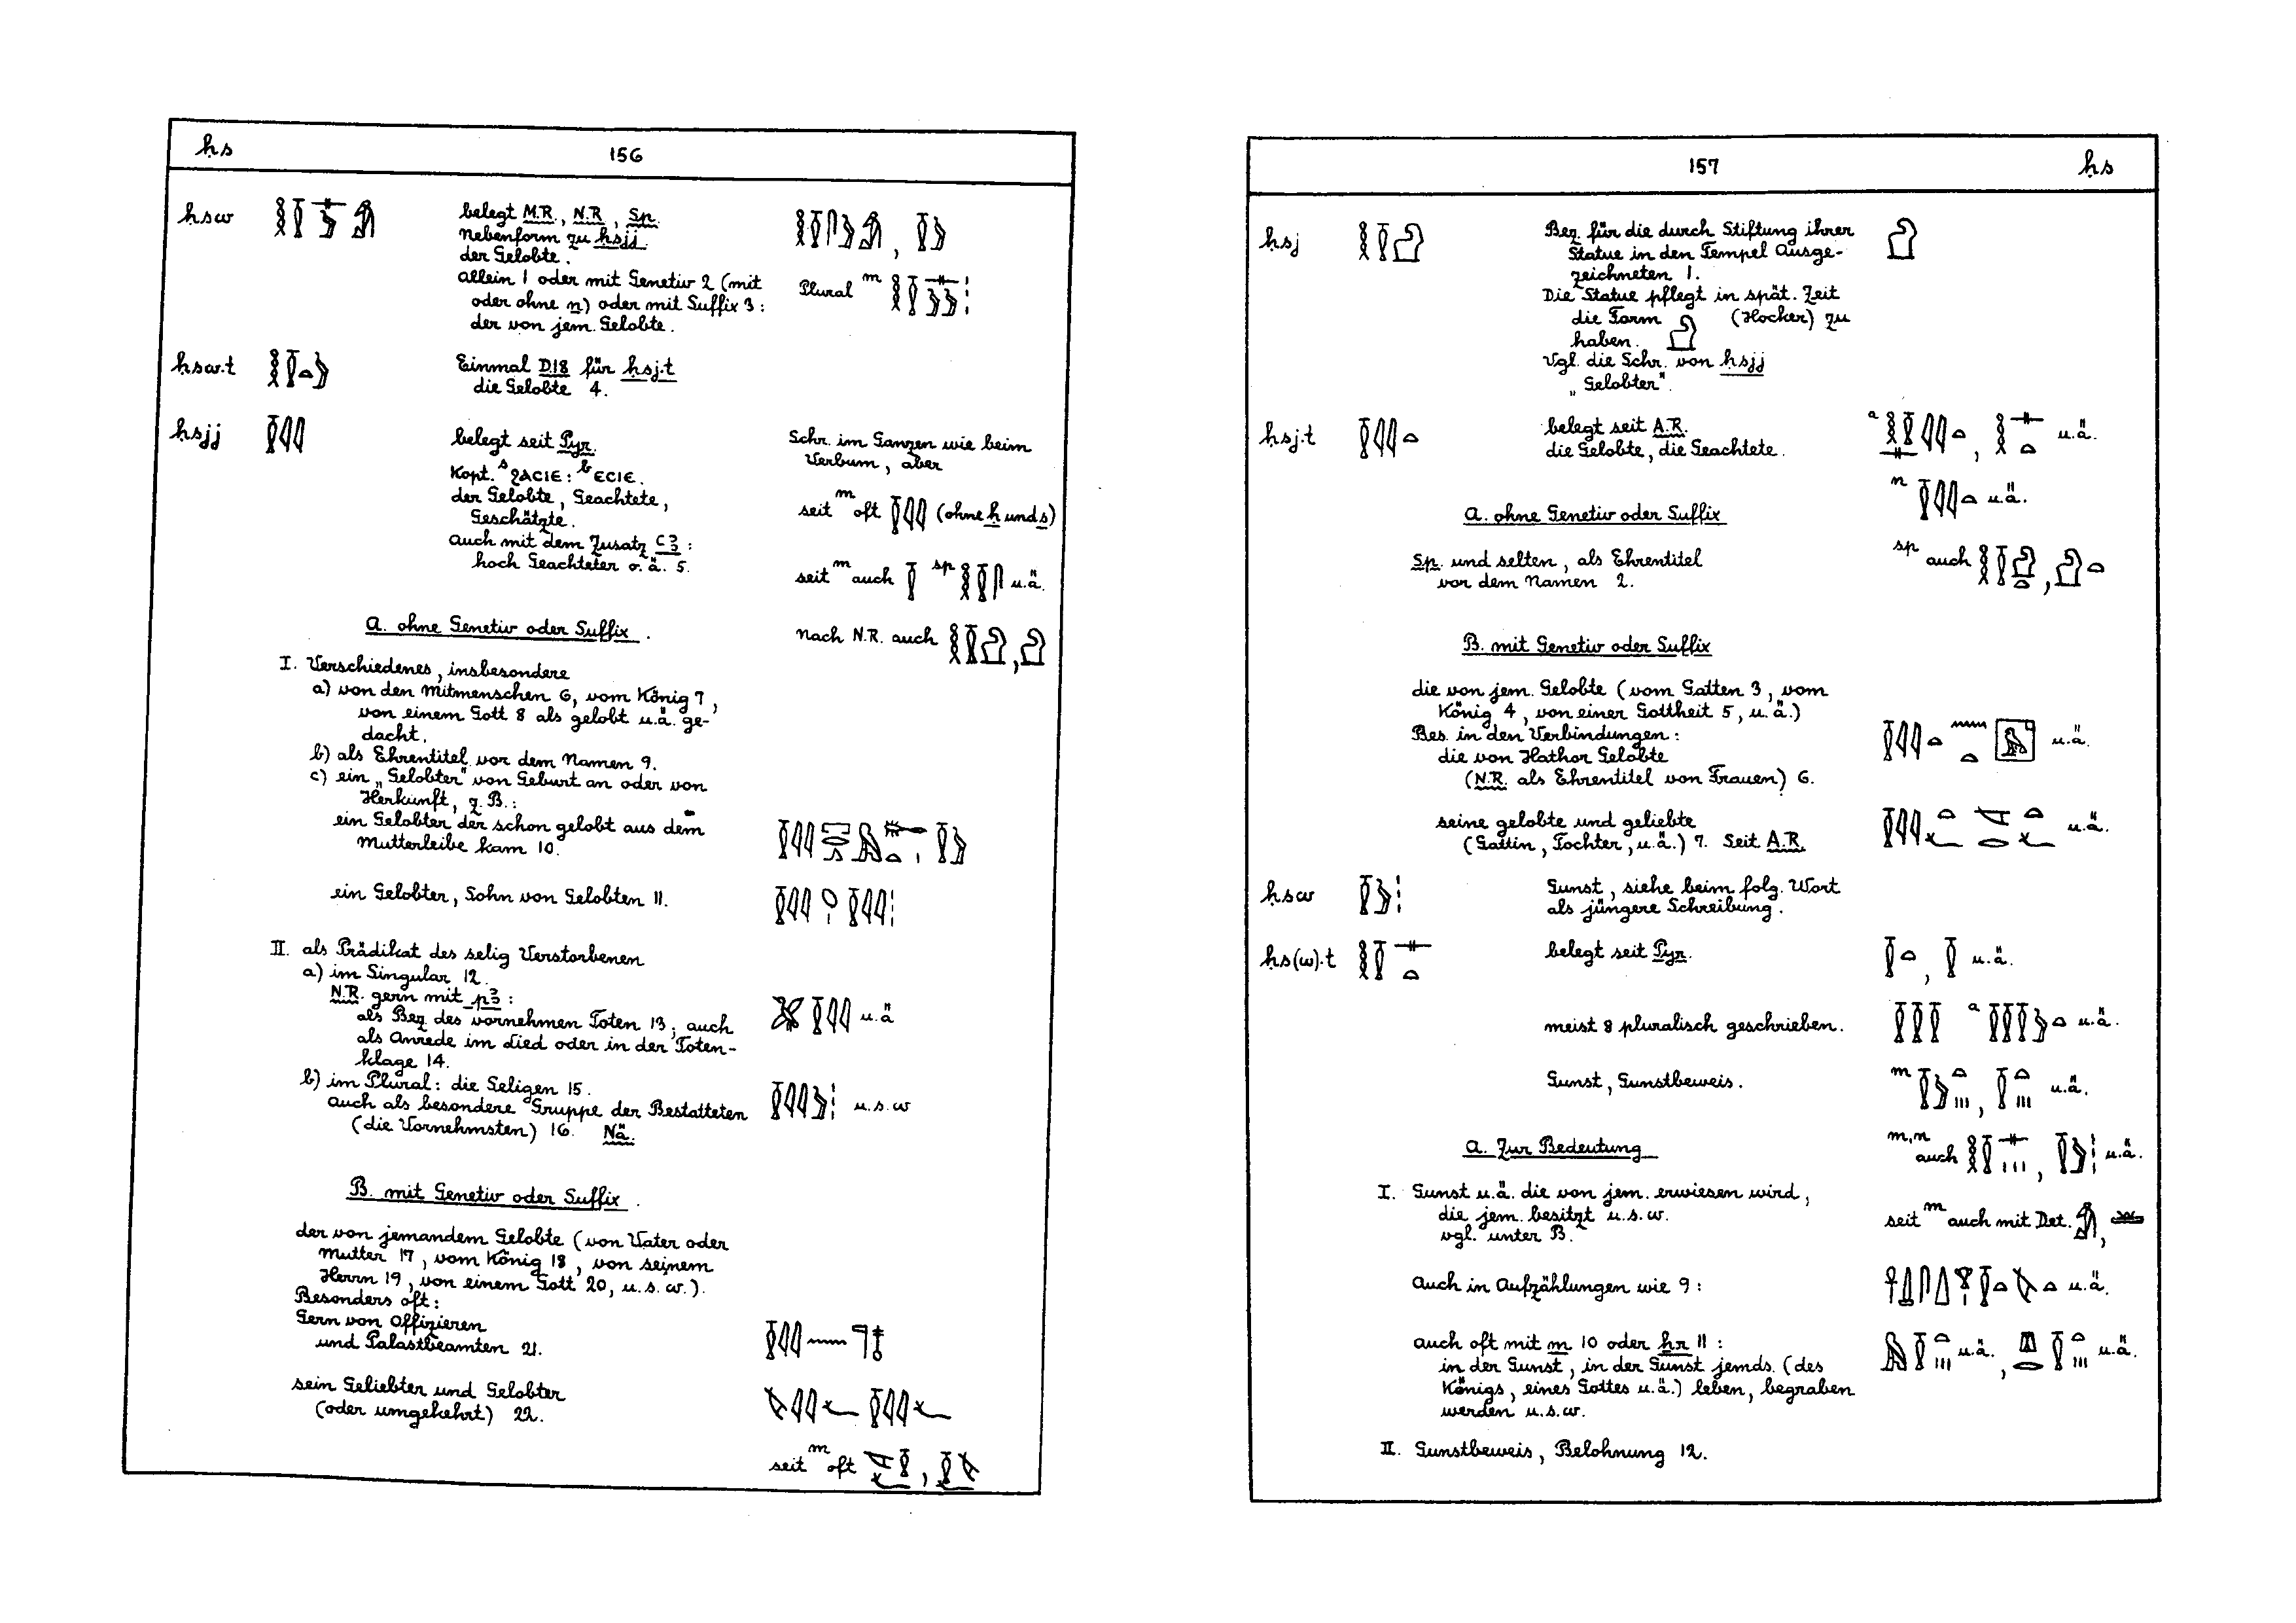 ḥs
156
ḥsw
belegt M.R., N.R., Sp.
Nebenform zu ḥsjj
der Gelobte.
Allein 1 oder mit Genetiv 2 (mit
oder ohne n) oder mit Suffix 3:
der von jem. Gelobte.
Plural m
ḥsw.t
Einmal D18 für ḥsj.t
die Gelobte 4.
ḥsjj
belegt seit Pyr.
Kopt. s ϩΑCΙΕ: b ΕCΙΕ.
der Gelobte, Geachtete,
Geschätzte.
auch mit dem Zusatz ꜥꜣ:
hoch Geachteter o.ä. 5.
Schr. im Ganzen wie beim
Verbum, aber
seit m oft (ohne ḥ und s)
seit m auch sp u.ä.
nach N.R. auch
A. ohne Genetiv oder Suffix.
I. Verschiedenes, insbesondere
a) von den Mitmenschen 6, vom König 7,
von einem Gott 8 als gelobt u.ä. ge-
dacht.
b) als Ehrentitel vor dem Namen 9.
c) ein „Gelobter" von Geburt an oder von
Herkunft, z.B.:
ein Gelobter der schon gelobt aus dem
Mutterleibe kam 10.
ein Gelobter, Sohn von Gelobten 11.
II. als Prädikat des selig Verstorbenen
a) im Singular 12.
N.R. gern mit pꜣ:
als Bez. des vornehmen Toten 13; auch
als Anrede im Lied oder in der Toten-
klage 14.
u.ä
b) im Plural: die Seligen 15.
auch als besondere Gruppe der Bestatteten
(die Vornehmsten) 16. Nä.
u.s.w
B. mit Genetiv oder Suffix.
der von jemandem Gelobte (von Vater oder
Mutter 17, vom König 18, von seinem
Herrn 19, von einem Gott 20, u.s.w.).
Besonders oft:
Gern von Offizieren
und Palastbeamten 21.
sein Geliebter und Gelobter
(oder umgekehrt) 22.
seit m oft
157
ḥs
ḥsj
Bez. für die durch Stiftung ihrer
Statue in den Tempel Ausge-
zeichneten 1.
Die Statue pflegt in spät. Zeit
die Form (Hocker) zu
haben.
Vgl. die Schr. von ḥsjj
„Gelobter".
ḥsj.t
belegt seit A.R.
die Gelobte, die Geachtete.
a , u.ä.
n u.ä.
A. ohne Genetiv oder Suffix
Sp. und selten, als Ehrentitel
vor dem Namen 2.
sp auch
B. mit Genetiv oder Suffix
die von jem. Gelobte (vom Gatten 3, vom
König 4, von einer Gottheit 5, u.ä.)
Bes. in den Verbindungen:
die von Hathor Gelobte
(N.R. als Ehrentitel von Frauen) 6.
u.ä.
seine gelobte und geliebte
(Gattin, Tochter, u.ä.) 7. Seit A.R.
u.ä.
ḥsw
Gunst, siehe beim folg. Wort
als jüngere Schreibung.
ḥs(w).t
belegt seit Pyr.
u.ä.
meist 8 pluralisch geschrieben.
a u.ä.
Gunst, Gunstbeweis.
m u.ä.
m,n auch u.ä.
A. Zur Bedeutung
I. Gunst u.ä. die von jem. erwiesen wird,
die jem. besitzt u.s.w.
vgl. unter B.
seit m auch mit Det.
auch in Aufzählungen wie 9:
u.ä.
auch oft mit m 10 oder ḥr 11:
in der Gunst, in der Gunst jemds. (des
Königs, eines Gottes u.ä.) leben, begraben
werden u.s.w.
u.ä. , u.ä.
II. Gunstbeweis, Belohnung 12.